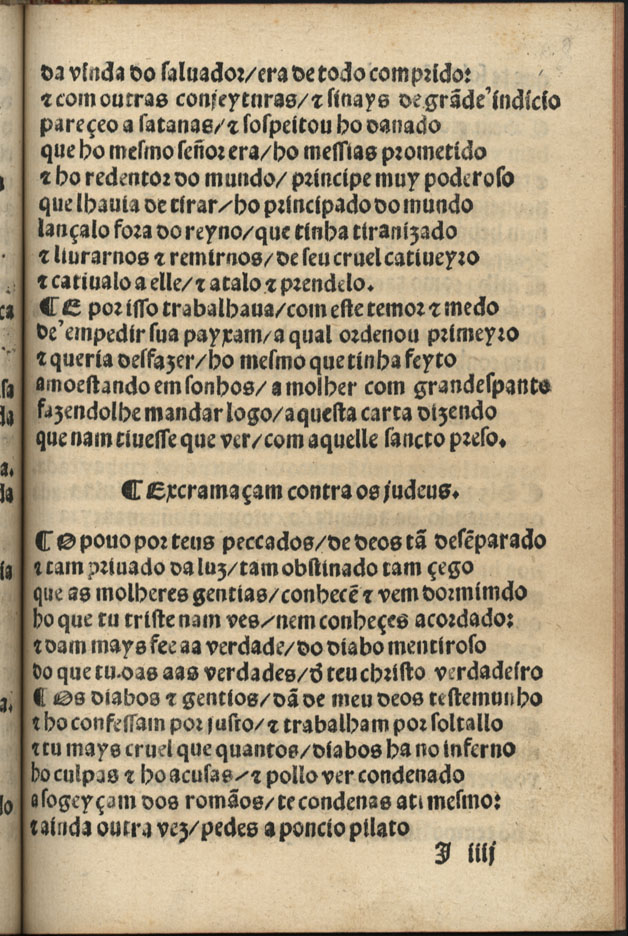 da vinda do saluador/era de todo comprido:
⁊ com outras conjeyturas/⁊ sinays de grãde'indicio
pareçeo a satanas/⁊ sospeitou ho danado
que ho mesmo señor era/ho messias prometido
⁊ ho redentor do mundo/principe muy poderoso
que lhauia de tirar/ho principado do mundo
lançalo fora do reyno/que tinha tiranizado
⁊ liurarnos ⁊ remirnos/de seu cruel catiueyro
⁊ catiualo a elle/⁊ atalo ⁊ prendelo.
¶ E por isso trabalhaua/com este temor ⁊ medo
de'empedir sua payxam/a qual ordenou primeyro
⁊ queria desfazer/ho mesmo que tinha feyto
amoestando em sonhos/a molher com grandespanto
fazendolhe mandar logo/aquesta carta dizendo
que nam tiuesse que ver/com aquelle sancto preso.
¶ Excramaçam contra os judeus.
¶ O pouo por teus peccados/de deos tã desẽparado
⁊ tam priuado da luz/tam obstinado tam çego
que as molheres gentias/conhecẽ ⁊ vem dormimdo
ho que tu triste nam ves/nem conheçes acordado:
⁊ dam mays fee aa verdade/do diabo mentiroso
do que tu das aas verdades/d̃ teu christo verdadeiro
¶ Os diabos ⁊ gentios/dã de meu deos testemunho
⁊ ho confessam por justo/⁊ trabalham por soltallo
⁊ tu mays cruel que quantos/diabos ha no inferno
ho culpas ⁊ ho acusas/⁊ pollo ver condenado
a sogeyçam dos romãos/te condenas ati mesmo:
⁊ ainda outra vez/pedes a poncio pilato
I iiij